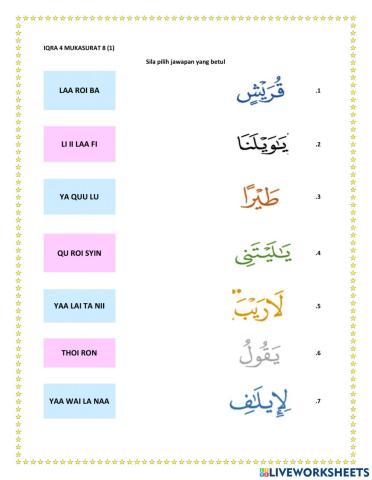 IQRA 4 MUKASURAT 8 (1)
Sila pilih jawapan yang betul
LAA ROI BA قُرَيْشٍ .1
LI II LAA FI يَٰوَيْلَنَا .2
YA QUU LU طَيْرًا .3
QU ROI SYIN يَٰلَيْتَنِى .4
YAA LAI TA NII لَارَيْبَ .5
THOI RON يَقُولُ .6
YAA WAI LA NAA لِإِيلَٰفِ .7
LIVEWORKSHEETS